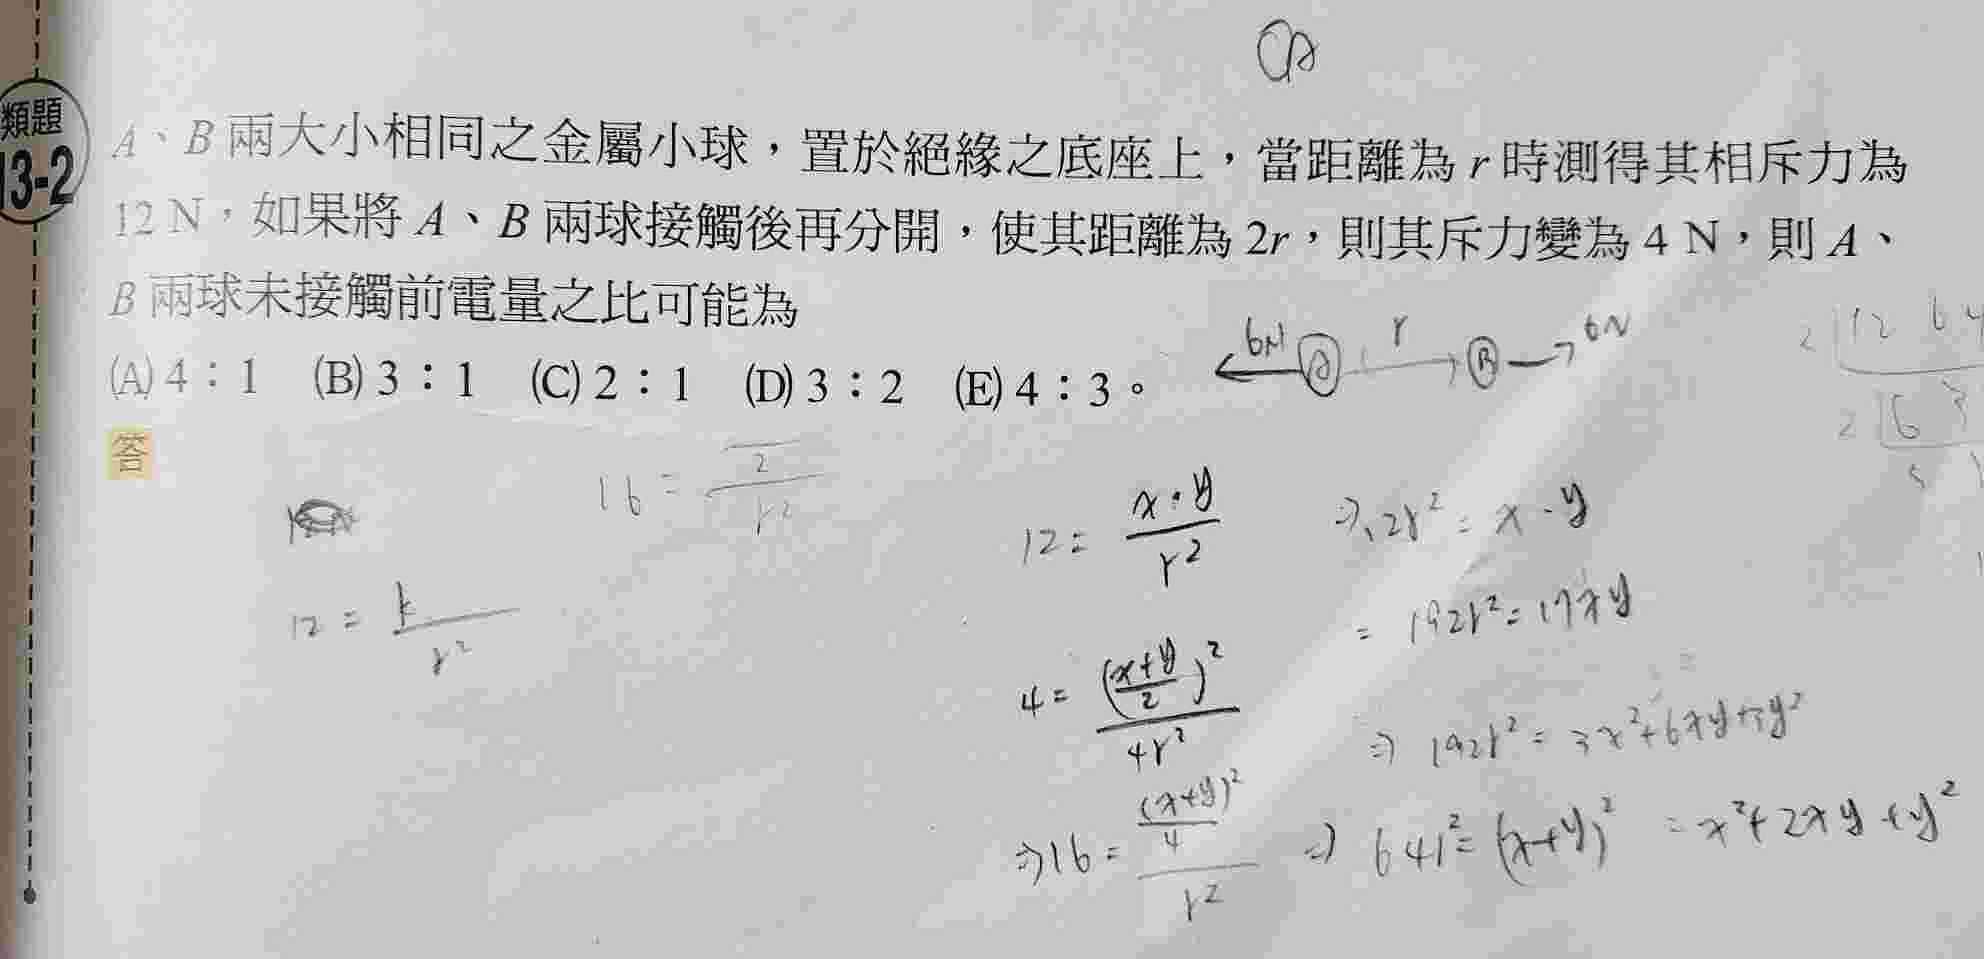 類題
13-2
A、B 兩大小相同之金屬小球,置於絕緣之底座上,當距離為 r 時測得其相斥力為
12 N,如果將 A、B 兩球接觸後再分開,使其距離為 2r,則其斥力變為 4 N,則 A、
B 兩球未接觸前電量之比可能為
(A) 4:1 (B) 3:1 (C) 2:1 (D) 3:2 (E) 4:3。
答
6N A r B 6N
2 12 64
2 6 3
16 = 2 / r²
12 = k / r²
12 = x·y / r² ⇒ 12r² = x·y
= 192r² = 17xy
4 = ((x+y)/2)² / 4r²
⇒ 192r² = 3x²+6xy+3y²
⇒ 16 = (x+y)²/4 / r² ⇒ 64r² = (x+y)² = x²+2xy+y²